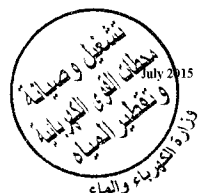 تشغيل و صيانة
محطات القوى الكهربائية
و تقطير المياه
July 2015
وزارة الكهرباء والماء